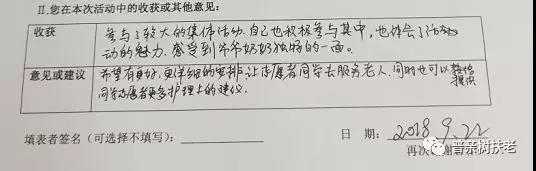 II.您在本次活动中的收获或其他意见:
收获
参与了较大的集体活动.自己也积极参与其中,也体会了活
动的魅力.感受到爷爷奶奶独特的一面。
意见或建议
希望有更好、更详细的安排.让志愿者同学去服务老人.同时也可以
提供
同学志愿者更多护理上的建议.
填表者签名(可选择不填写):
日 期: 2018.9.22
再次
普亲树扶老